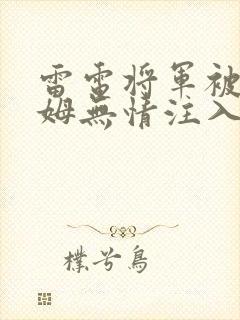 雷电将軍被
姆無情注入
樸兮鳥